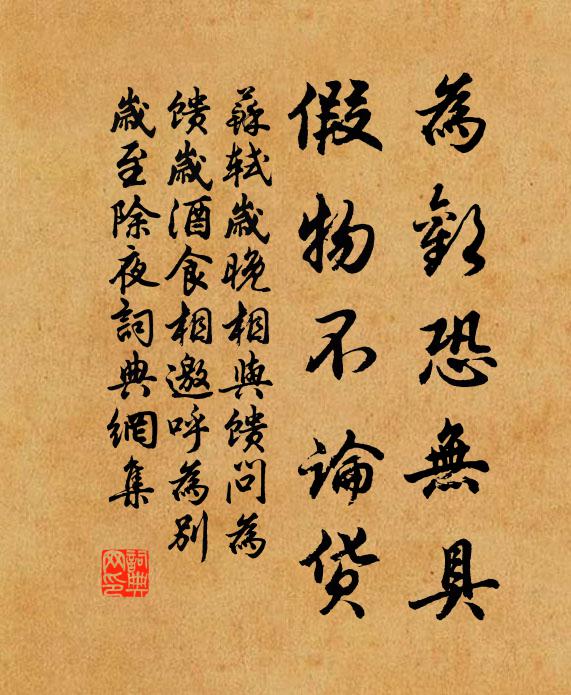 為歡恐無具
假物不論货
蘇軾歲晚相與馈问為
馈歲酒食相邀呼為别
歲至除夜詞典網集
詞典
网印